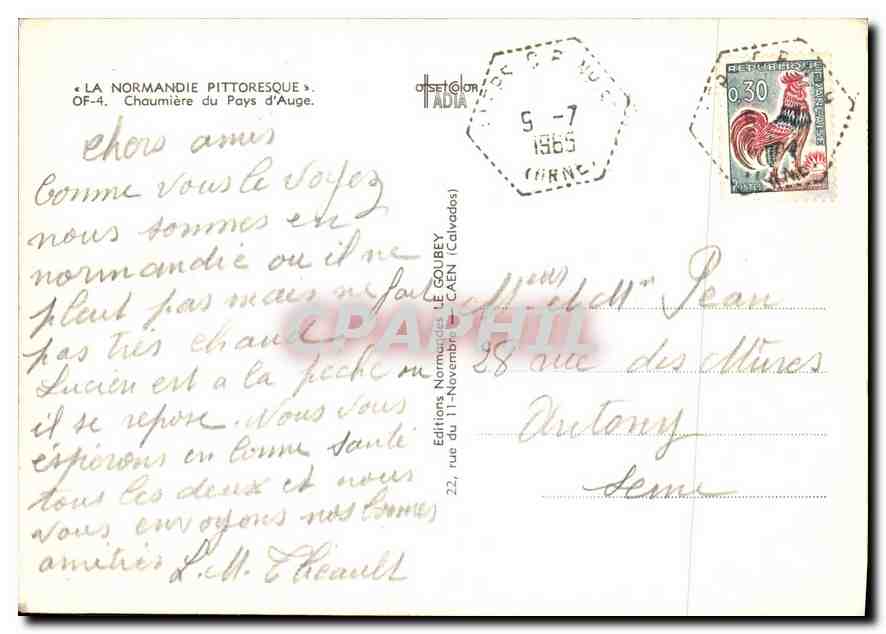 « LA NORMANDIE PITTORESQUE ».
OF-4. Chaumière du Pays d'Auge.
offset Color
IADIA
chers amis
Comme vous le voyez
nous sommes en
normandie ou il ne
pleut pas mais ne fait
pas très chaud
Lucien est a la pêche ou
il se repose. Nous vous
espérons en bonne santé
tous les deux et nous
vous envoyons nos bonnes
amitiés
L. M. Théault
Editions Normandes LE GOUBEY
22, rue du 11-Novembre - CAEN (Calvados)
5 -7
1965
(ORNE)
REPUBLIQUE FRANCAISE
0,30
POSTES
Meur et Mm Jean
28 rue des Mûres
Antony
Seine
CPAPHIL